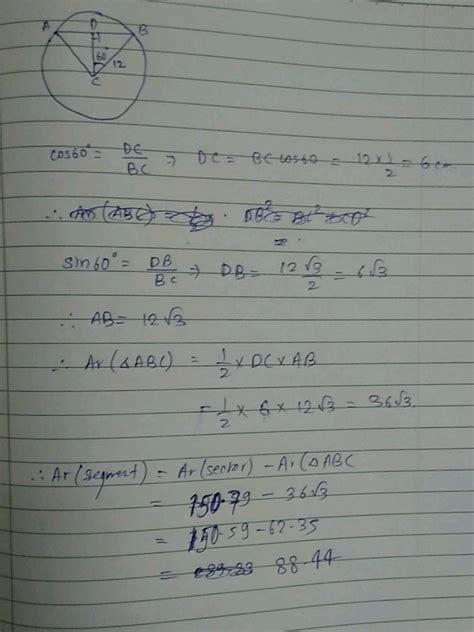 A D B
60°
12
C
cos60° = DC/BC ⇒ DC = BC cos60 = 12 × 1/2 = 6 cm
∴ Ar (ABC) = 1/2 · DB² = BC²
=
sin60° = DB/BC ⇒ DB = 12√3/2 = 6√3
∴ AB = 12√3
∴ Ar (△ABC) = 1/2 × DC × AB
= 1/2 × 6 × 12√3 = 36√3.
∴ Ar (segment) = Ar (sector) − Ar (△ABC
= 150.79 − 36√3
= 150.59 − 62.35
= 88.44